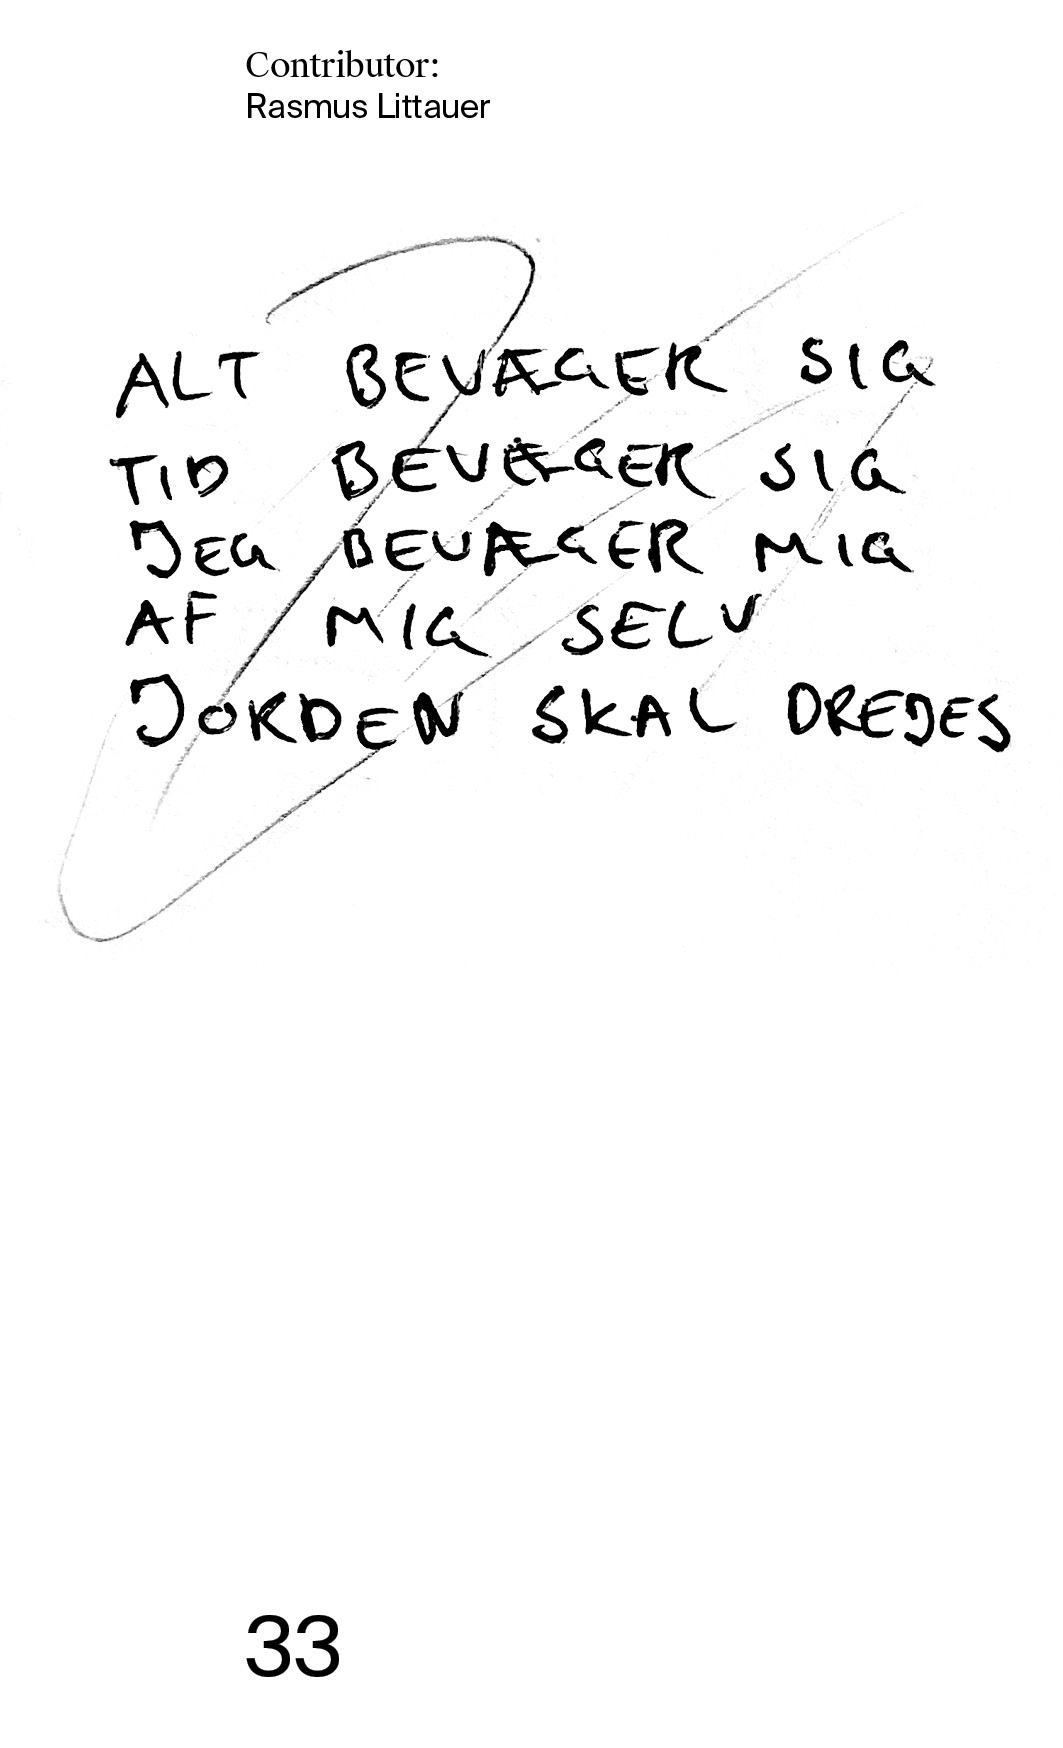 Contributor:
Rasmus Littauer
ALT BEVÆGER SIG
TID BEVÆGER SIG
JEG BEVÆGER MIG
AF MIG SELV
JORDEN SKAL DREJES
33